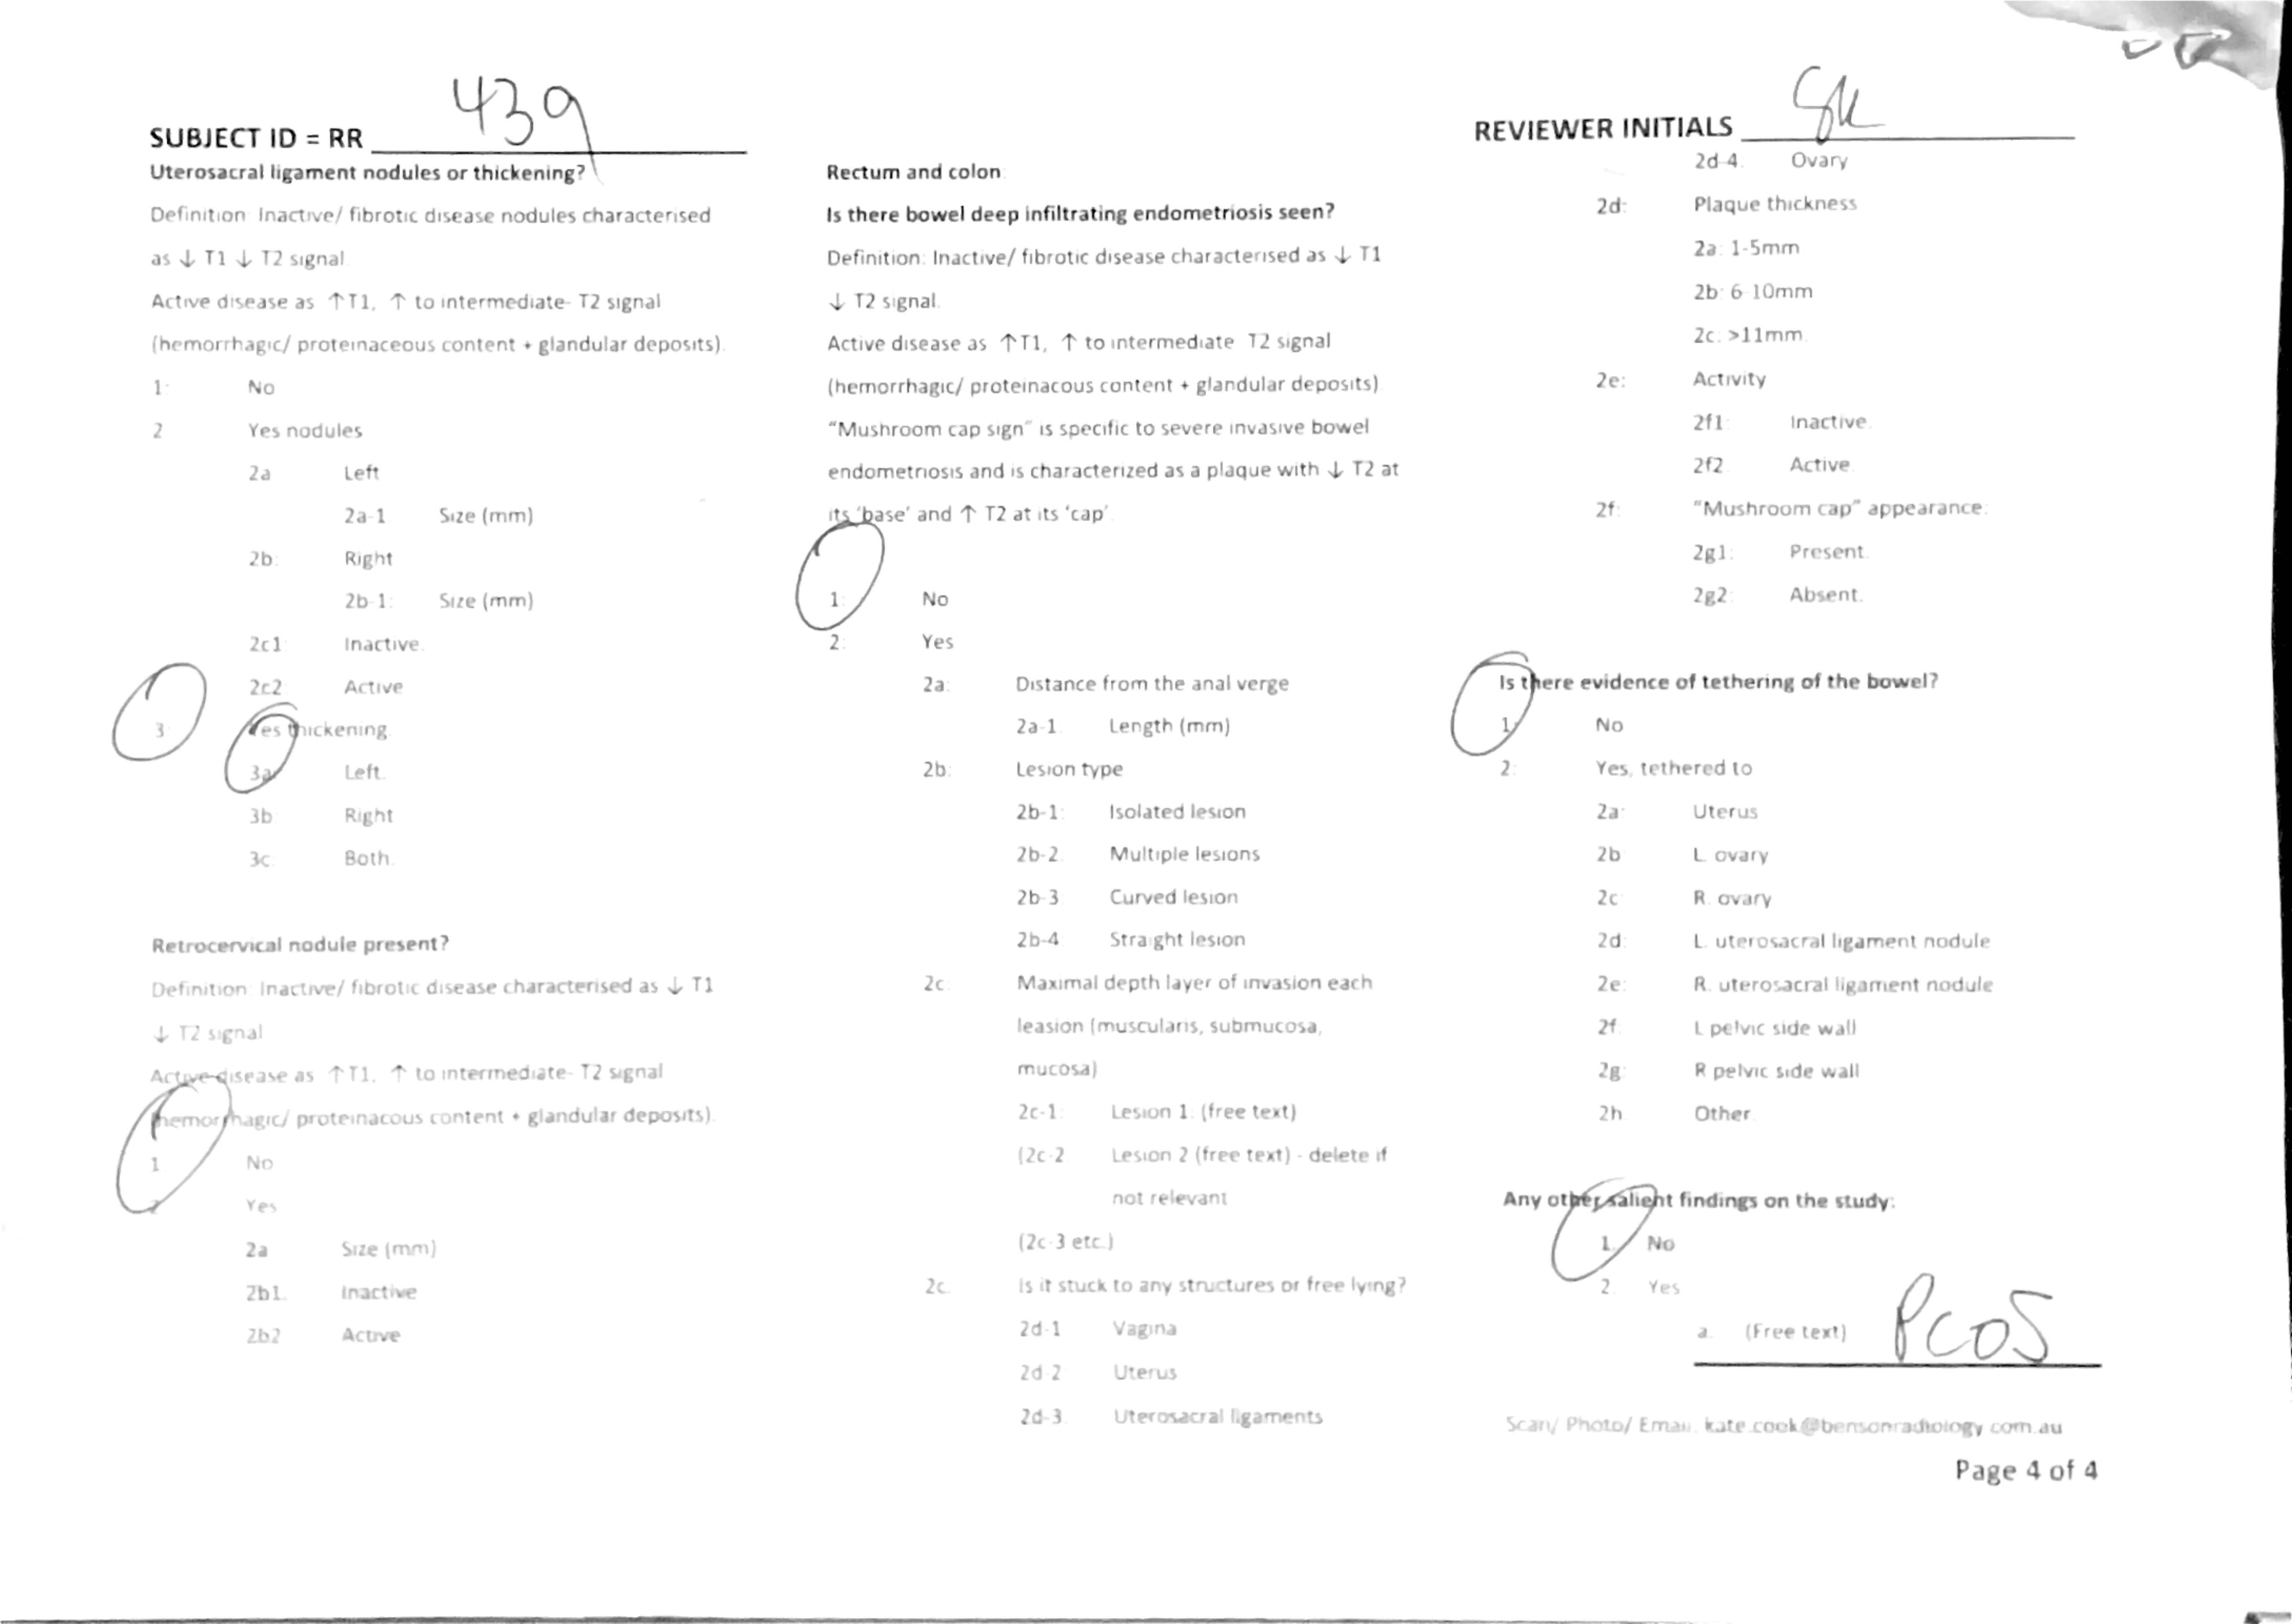 SUBJECT ID = RR 439
Uterosacral ligament nodules or thickening?
Definition Inactive/ fibrotic disease nodules characterised
as ↓ T1 ↓ T2 signal
Active disease as ↑T1, ↑ to intermediate- T2 signal
(hemorrhagic/ proteinaceous content + glandular deposits).
1: No
2 Yes nodules
2a Left
2a-1 Size (mm)
2b: Right
2b-1: Size (mm)
2c1 Inactive.
2c2 Active
3: Yes thickening.
3a Left.
3b Right
3c. Both.
Retrocervical nodule present?
Definition Inactive/ fibrotic disease characterised as ↓ T1
↓ T2 signal
Active disease as ↑T1, ↑ to intermediate- T2 signal
(hemorrhagic/ proteinacous content + glandular deposits).
1 No
2 Yes
2a Size (mm)
2b1. Inactive
2b2 Active
Rectum and colon
Is there bowel deep infiltrating endometriosis seen?
Definition: Inactive/ fibrotic disease characterised as ↓ T1
↓ T2 signal.
Active disease as ↑T1, ↑ to intermediate T2 signal
(hemorrhagic/ proteinacous content + glandular deposits)
“Mushroom cap sign” is specific to severe invasive bowel
endometriosis and is characterized as a plaque with ↓ T2 at
its ‘base’ and ↑ T2 at its ‘cap’.
1: No
2: Yes
2a: Distance from the anal verge
2a-1. Length (mm)
2b: Lesion type
2b-1: Isolated lesion
2b-2. Multiple lesions
2b-3 Curved lesion
2b-4 Straight lesion
2c Maximal depth layer of invasion each
leasion (muscularis, submucosa,
mucosa)
2c-1: Lesion 1: (free text)
(2c-2 Lesion 2 (free text) - delete if
not relevant
(2c-3 etc.)
2c. Is it stuck to any structures or free lying?
2d-1 Vagina
2d-2 Uterus
2d-3. Uterosacral ligaments
REVIEWER INITIALS
2d-4. Ovary
2d: Plaque thickness
2a: 1-5mm
2b: 6-10mm
2c: >11mm.
2e: Activity
2f1: Inactive.
2f2. Active.
2f: “Mushroom cap” appearance.
2g1: Present.
2g2: Absent.
Is there evidence of tethering of the bowel?
1: No
2: Yes, tethered to
2a: Uterus
2b L. ovary
2c R. ovary
2d: L. uterosacral ligament nodule
2e: R. uterosacral ligament nodule
2f. L pelvic side wall
2g: R pelvic side wall
2h Other.
Any other salient findings on the study:
1. No
2. Yes
a. (Free text) PCOS
Scan/ Photo/ Email. kate.cook@bensonradiology.com.au
Page 4 of 4